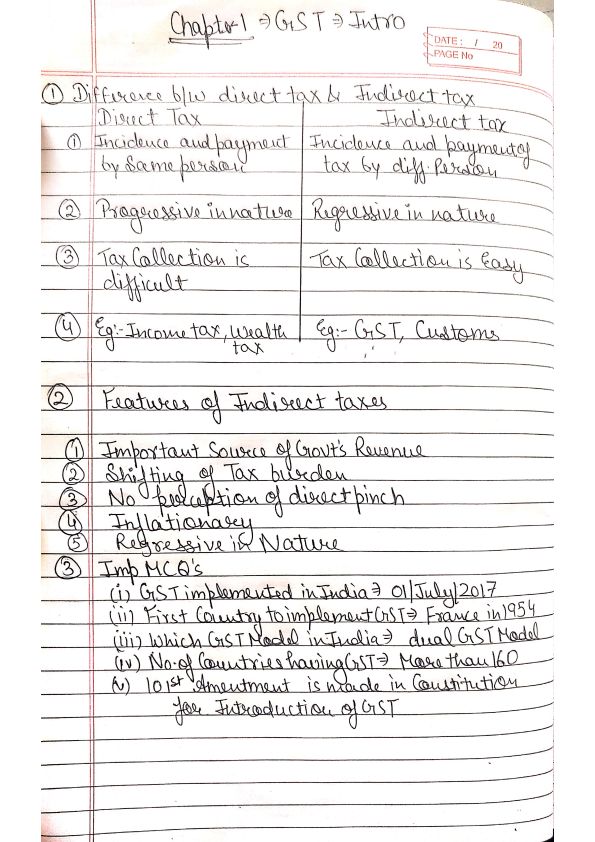 Chapter-1 ⇒ GST ⇒ Intro
DATE: / 20
PAGE No
① Difference b/w direct tax & Indirect tax
Direct Tax Indirect tax
① Incidence and payment by Same person Incidence and payment of tax by diff. Person
② Progressive in nature Regressive in nature
③ Tax Collection is difficult Tax Collection is Easy
④ Eg:- Income tax, Wealth tax Eg:- GST, Customs
② Features of Indirect taxes
① Important Source of Govt's Revenue
② Shifting of Tax burden
③ No perception of direct pinch
④ Inflationary
⑤ Regressive in Nature
③ Imp MCQ's
(i) GST implemented in India ⇒ 01/July/2017
(ii) First Country to implement GST ⇒ France in 1954
(iii) Which GST Model in India ⇒ dual GST Model
(iv) No. of Countries having GST ⇒ More than 160
(v) 101st Amentment is made in Constitution
for Introduction of GST